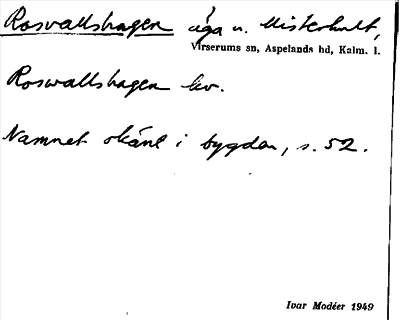 Rosvallshagen äga u. Misterhult,
Virserums sn, Aspelands hd, Kalm. l.
Roswallshagen kv.
Namnet okänt i bygden, s. 52.
Ivar Modéer 1949